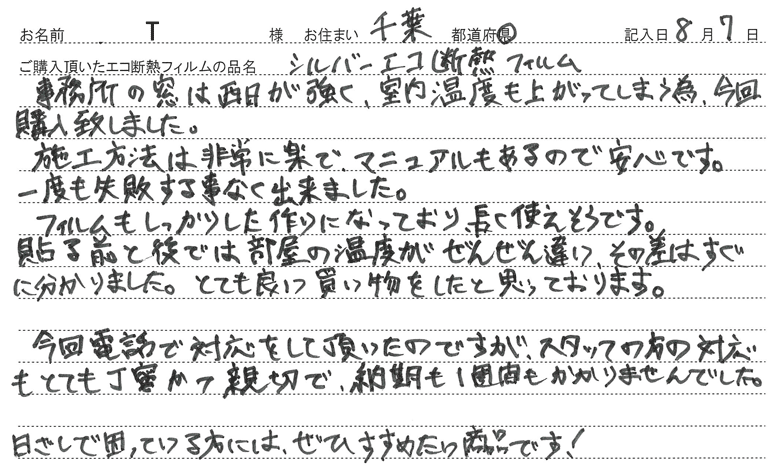 お名前 T 様 お住まい 千葉 都道府県 記入日 8 月 7 日
ご購入頂いたエコ断熱フィルムの品名 シルバーエコ断熱フィルム
事務所の窓は西日が強く、室内温度も上がってしまう為、今回
購入致しました。
施工方法は非常に楽で、マニュアルもあるので安心です。
一度も失敗する事なく出来ました。
フィルムもしっかりした作りになっており、長く使えそうです。
貼る前と後では部屋の温度がぜんぜん違い、その差はすぐ
に分かりました。とても良い買い物をしたと思っております。
今回電話で対応をして頂いたのですが、スタッフの方の対応
もとても丁寧かつ親切で、納期も1週間もかかりませんでした。
日ざしで困っている方には、ぜひすすめたい商品です!